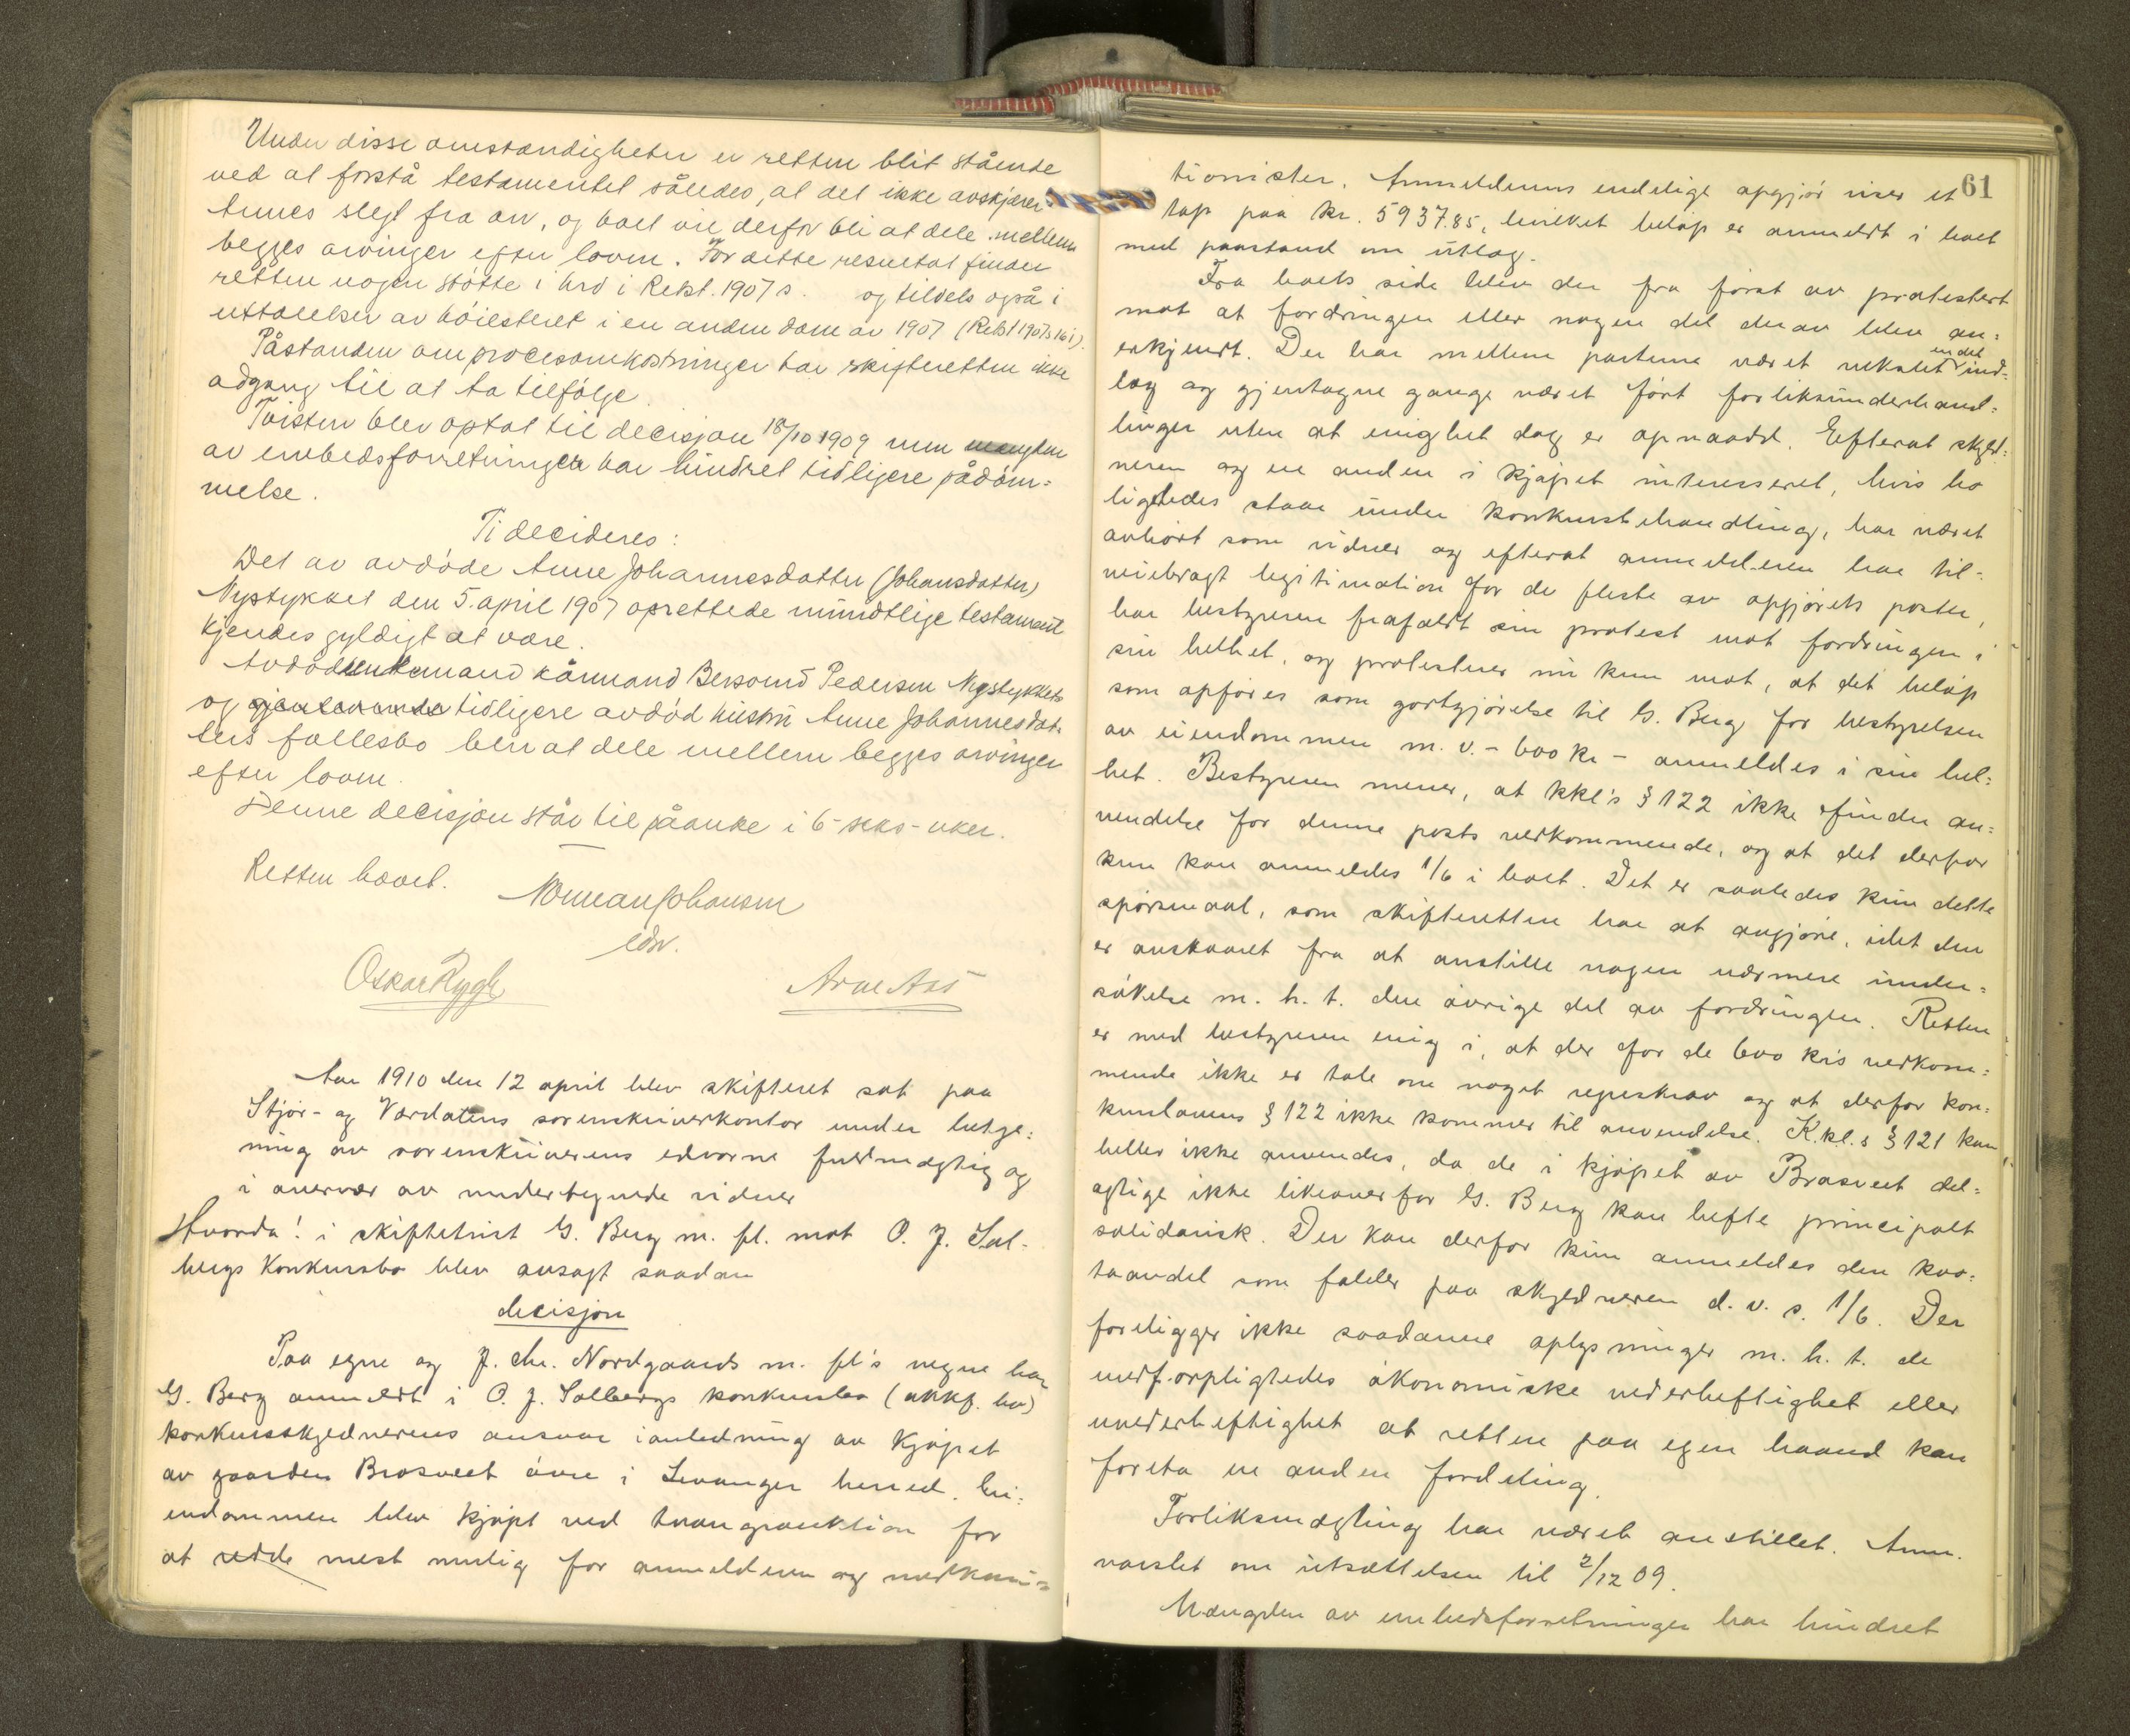 Under disse omstændigheter er retten blit stående
ved at forstå testamentet således, at det ikke avskjærer
Annes slegt fra arv, og boet vil derfor bli at dele mellem
begges arvinger efter loven. For dette resultat finder
retten nogen støtte i hrd i Retst. 1907 s. og tildels også i
uttalelser av höiesteret i en anden dom av 1907 (Retst 1907 s 161).
Påstanden om procesomkostninger har skifteretten ikke
adgang til at ta tilfölge.
Tvisten blev optat til decisjon 18/10 1909 men mengden
av embedsforretninger har hindret tidligere pådöm-
melse.
Ti decideres:
Det av avdöde Anne Johannesdatter (Johansdatter)
Nystykket den 5. april 1907 oprettede mundtlige testament
kjendes gyldigt at være.
Avdöde enkemand kårmand Bersvend Pedersen Nystykkets
og gjenlevende tidligere avdöd hustru Anne Johannesdat-
ters fællesbo blir at dele mellem begges arvinger
efter loven.
Denne decisjon står til påanke i 6 - seks - uker.
Retten hævet.
Norman Johansen
edsv.
Oskar Rygh
Arne Aas
Aar 1910 den 12 april blev skifteret sat paa
Stjør- og Værdalens sorenskriverkontor under betje-
ning av sorenskriverens edsvorne fuldmægtig og
i overvær av undertegnede vidner
Hvorda! i skiftetvist G. Berg m. fl. mot O. J. Sal-
bergs Konkursbo blev avsagt saadan
decisjon
Paa egne og J. Chr. Nordgaards m. fl's vegne har
G. Berg anmeldt i O. J. Salbergs konkursbo (akkf. bo)
konkursskyldnerens ansvar i anledning av kjöpet
av gaarden Brasveet övre i Levanger herred. Ei-
endommen blev kjöpt ved tvangsauktion for
at redde mest mulig for anmelderen og medkau-
61
tionister. Anmelderens endelige opgjör viser et
tap paa kr. 5937.85, hvilket belöp er anmeldt i boet
med paastand om utlæg.
Fra boets side blev der fra först av protestert
mot at fordringen eller nogen del derav blev an-
erkjendt. Der har mellem parterne været vekslet en del ind-
læg og gjentagne gange været fört forliksunderhand-
linger uten at enighet dog er opnaadd. Efterat skyld-
neren og en anden i kjöpet interesseret, hvis bo
ligeledes staar under konkursbehandling, har været
avhört som vidner og efterat anmelderen har til-
veiebragt legitimation for de fleste av opgjörets poster,
har bestyreren frafaldt sin protest mot fordringen i
sin helhet, og protesterer nu kun mot, at det belöp
som opföres som godtgjörelse til G. Berg for bestyrelsen
av eiendommen m. v. - 600 kr - anmeldes i sin hel-
het. Bestyreren mener, at kkl's § 122 ikke finder an-
vendelse for denne posts vedkommende, og at det derfor
kun kan anmeldes 1/6 i boet. Det er saaledes kun dette
spörsmaal, som skifteretten har at avgjöre, idet den
er avskaaret fra at anstille nogen nærmere under-
sökelse m. h. t. den övrige del av fordringen. Retten
er med bestyreren enig i, at der for de 600 kr's vedkom-
mende ikke er tale om noget regreskrav og at derfor kon-
kurslovens § 122 ikke kommer til anvendelse. K.kl.s § 121 kan
heller ikke anvendes, da de i kjöpet av Brasveet del-
agtige ikke likeoverfor G. Berg kan hefte principalt
solidarisk. Der kan derfor kun anmeldes den kvo-
taandel som falder paa skyldneren d. v. s. 1/6. Der
foreligger ikke saadanne oplysninger m. h. t. de
medforpligtedes ökonomiske vederheftighet eller
uvederheftighet at retten paa egen haand kan
foreta en anden fordeling.
Forliksmægling har været anstillet. Anm.
varslet om utsættelsen til 2/12 09.
Mængden av embedsforretninger har hindret